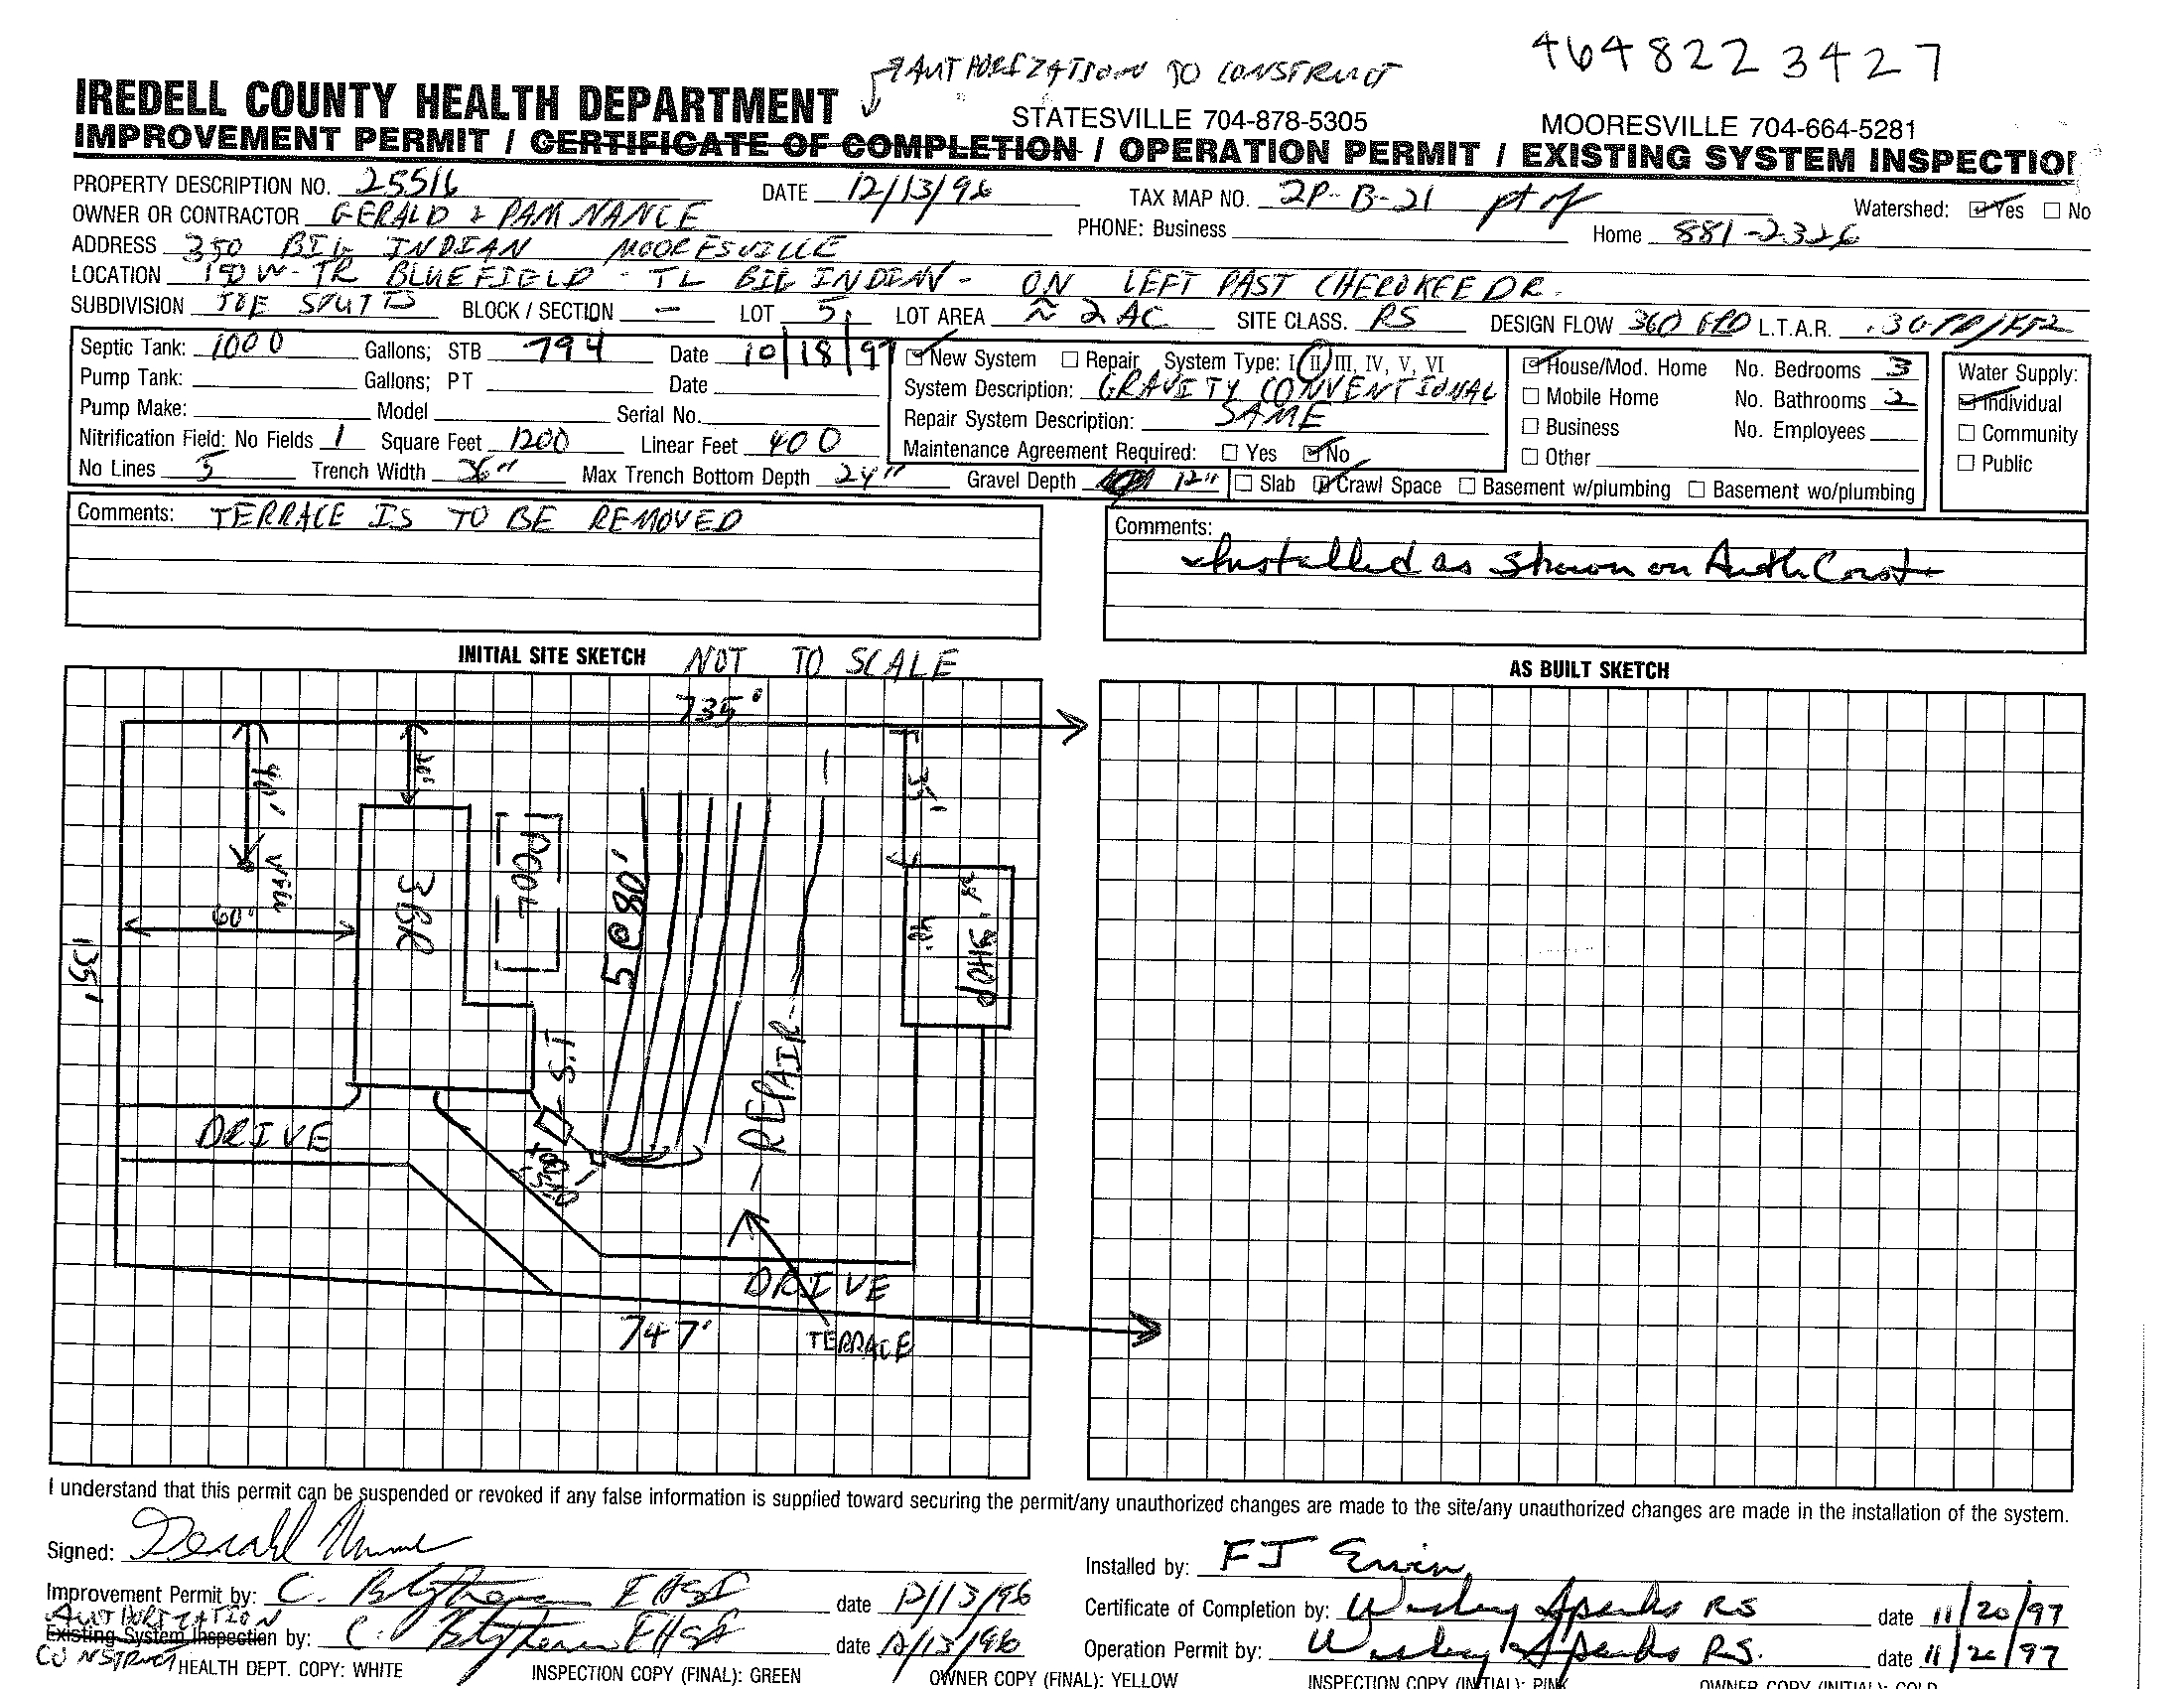 4648223427
AUTHORIZATION TO CONSTRUCT
IREDELL COUNTY HEALTH DEPARTMENT STATESVILLE 704-878-5305 MOORESVILLE 704-664-5281
IMPROVEMENT PERMIT / CERTIFICATE OF COMPLETION / OPERATION PERMIT / EXISTING SYSTEM INSPECTION
PROPERTY DESCRIPTION NO. 25516 DATE 12/13/96 TAX MAP NO. 2P-B-21 pt of Watershed: Yes No
OWNER OR CONTRACTOR GERALD & PAM NANCE PHONE: Business Home 881-2326
ADDRESS 350 BIG INDIAN MOORESVILLE
LOCATION 150 W - TR BLUEFIELD - TL BIG INDIAN - ON LEFT PAST CHEROKEE DR.
SUBDIVISION JOE STUTTS BLOCK / SECTION — LOT 5 LOT AREA ≈ 2 AC SITE CLASS. PS DESIGN FLOW 360 GPD L.T.A.R. .3 GPD/FT2
Septic Tank: 1000 Gallons; STB 794 Date 10/18/97 New System Repair System Type: I, II, III, IV, V, VI House/Mod. Home No. Bedrooms 3 Water Supply:
Pump Tank: Gallons; PT Date System Description: GRAVITY CONVENTIONAL Mobile Home No. Bathrooms 2 Individual
Pump Make: Model Serial No. Repair System Description: SAME Business No. Employees Community
Nitrification Field: No Fields 1 Square Feet 1200 Linear Feet 400 Maintenance Agreement Required: Yes No Other Public
No Lines 5 Trench Width 36" Max Trench Bottom Depth 24" Gravel Depth 12" Slab Crawl Space Basement w/plumbing Basement wo/plumbing
Comments: TERRACE IS TO BE REMOVED
Comments: Installed as shown on Auth Const
INITIAL SITE SKETCH NOT TO SCALE
AS BUILT SKETCH
735'
40'
WELL
60'
135'
3BR
POOL
5 @ 80'
35'
40'
SHOP
S.T
REPAIR
DRIVE
DRIVE
747'
TERRACE
I understand that this permit can be suspended or revoked if any false information is supplied toward securing the permit/any unauthorized changes are made to the site/any unauthorized changes are made in the installation of the system.
Signed: Gerald Nance
Installed by: FJ Ervin
Improvement Permit by: C. Blythe EHSI date 12/13/96
Certificate of Completion by: Wesley Sparks RS date 11/20/97
AUTHORIZATION
Existing System Inspection by: C. Blythe EHSI date 12/13/96
CONSTRUCT
Operation Permit by: Wesley Sparks RS. date 11/20/97
HEALTH DEPT. COPY: WHITE INSPECTION COPY (FINAL): GREEN OWNER COPY (FINAL): YELLOW INSPECTION COPY (INITIAL): PINK OWNER COPY (INITIAL): GOLD